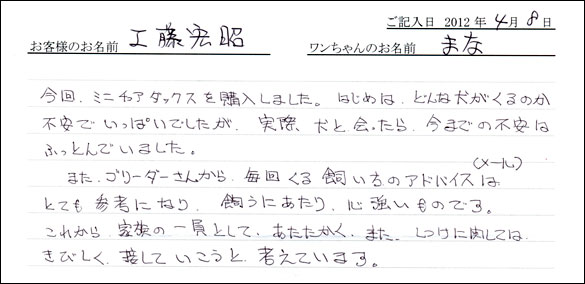 ご記入日 2012 年 4 月 8 日
お客様のお名前 工藤宏昭 ワンちゃんのお名前 まな
今回、ミニチュアダックスを購入しました。はじめは、どんな犬がくるのか
不安でいっぱいでしたが、実際、犬と会ったら、今までの不安は
ふっとんでいました。
また、ブリーダーさんから、毎回くる飼い方のアドバイス(メール)は
とても参考になり、飼うにあたり、心強いものです。
これから、家族の一員として、あたたかく、また、しつけに関しては、
きびしく、接していこうと、考えています。